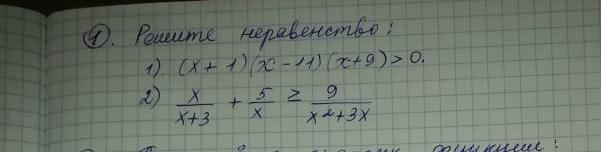 1. Решите неравенство:
1) (x + 1)(x - 11)(x+9) > 0.
2) x/(x+3) + 5/x ≥ 9/(x²+3x)
функции: